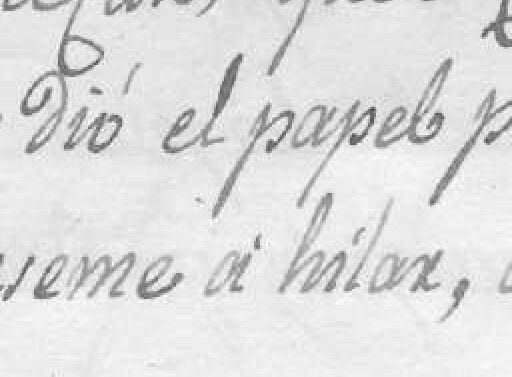 Dió el papel p
seme á hilar,